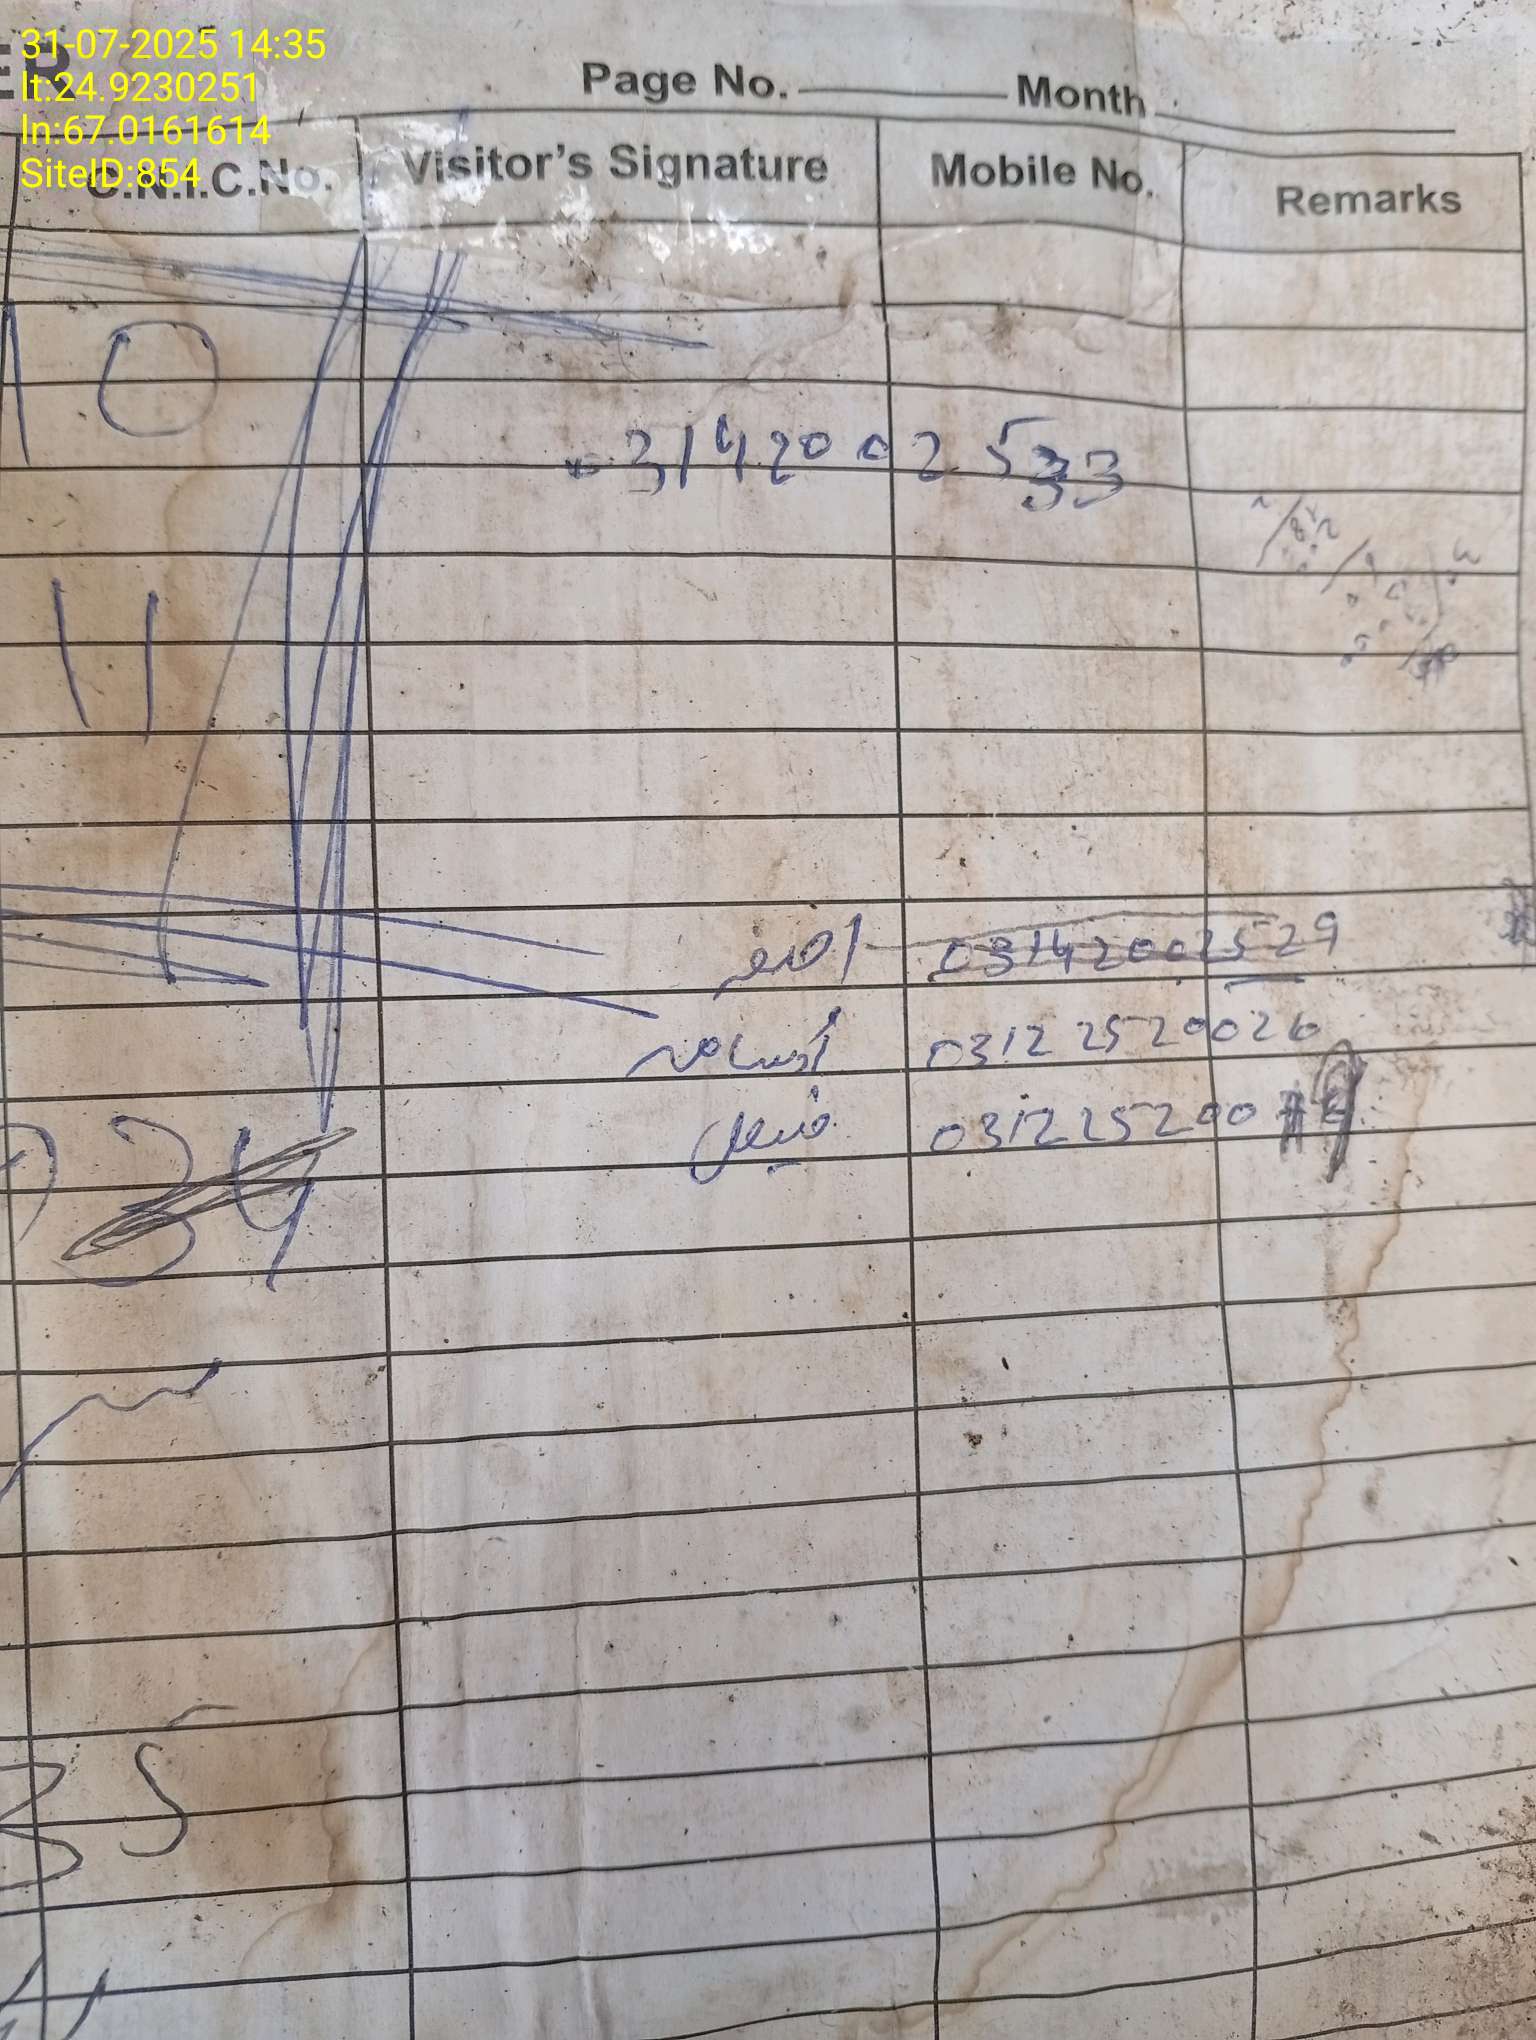 31-07-2025 14:35
lt:24.9230251
ln:67.0161614
SiteID:854
ER
Page No. Month
C.N.I.C.No. Visitor's Signature Mobile No. Remarks
10
03142002533
11
احمد 03142002529
أسامہ 03122520026
فیصل 031225200
34
35